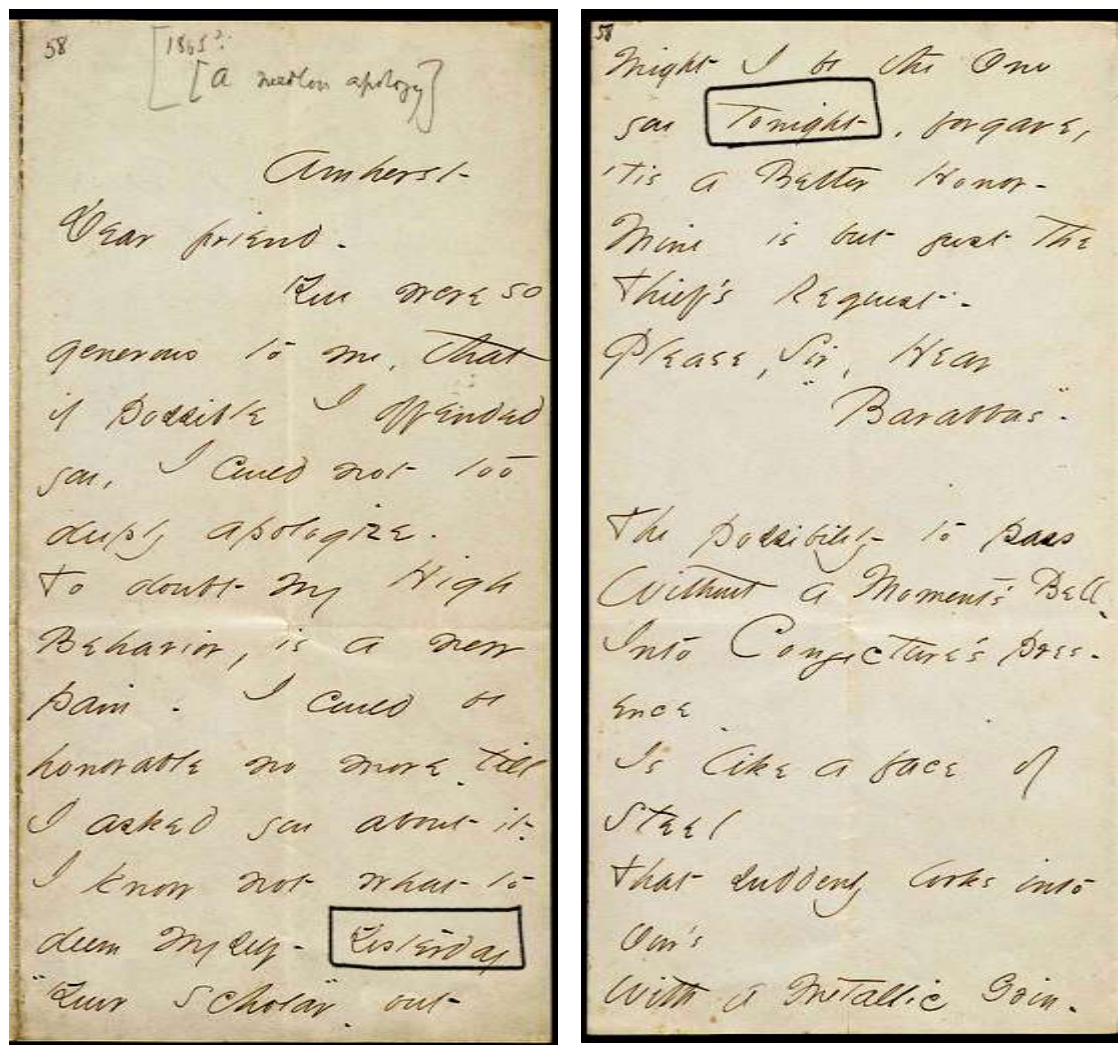 58
[1865?
[A needless apology]
Amherst-
Dear friend.
Your were so
generous to me, that
if possible I offended
you, I could not too
deeply apologize.
To doubt my High
Behavior, is a new
pain. I could be
honorable no more till
I asked you about it.
I know not what to
deem myself - Yesterday
"Your Scholar" out
58
might I be the One
you Tonight, forgave,
'tis a Better Honor -
Mine is but just the
Thief's Request -
Please, Sir, Hear
"Barabbas".
The possibility to pass
Without a Moment's Bell
Into Conjecture's pres-
ence
Is like a face of
Steel
That suddenly looks into
Our's
With a Metallic Grin.